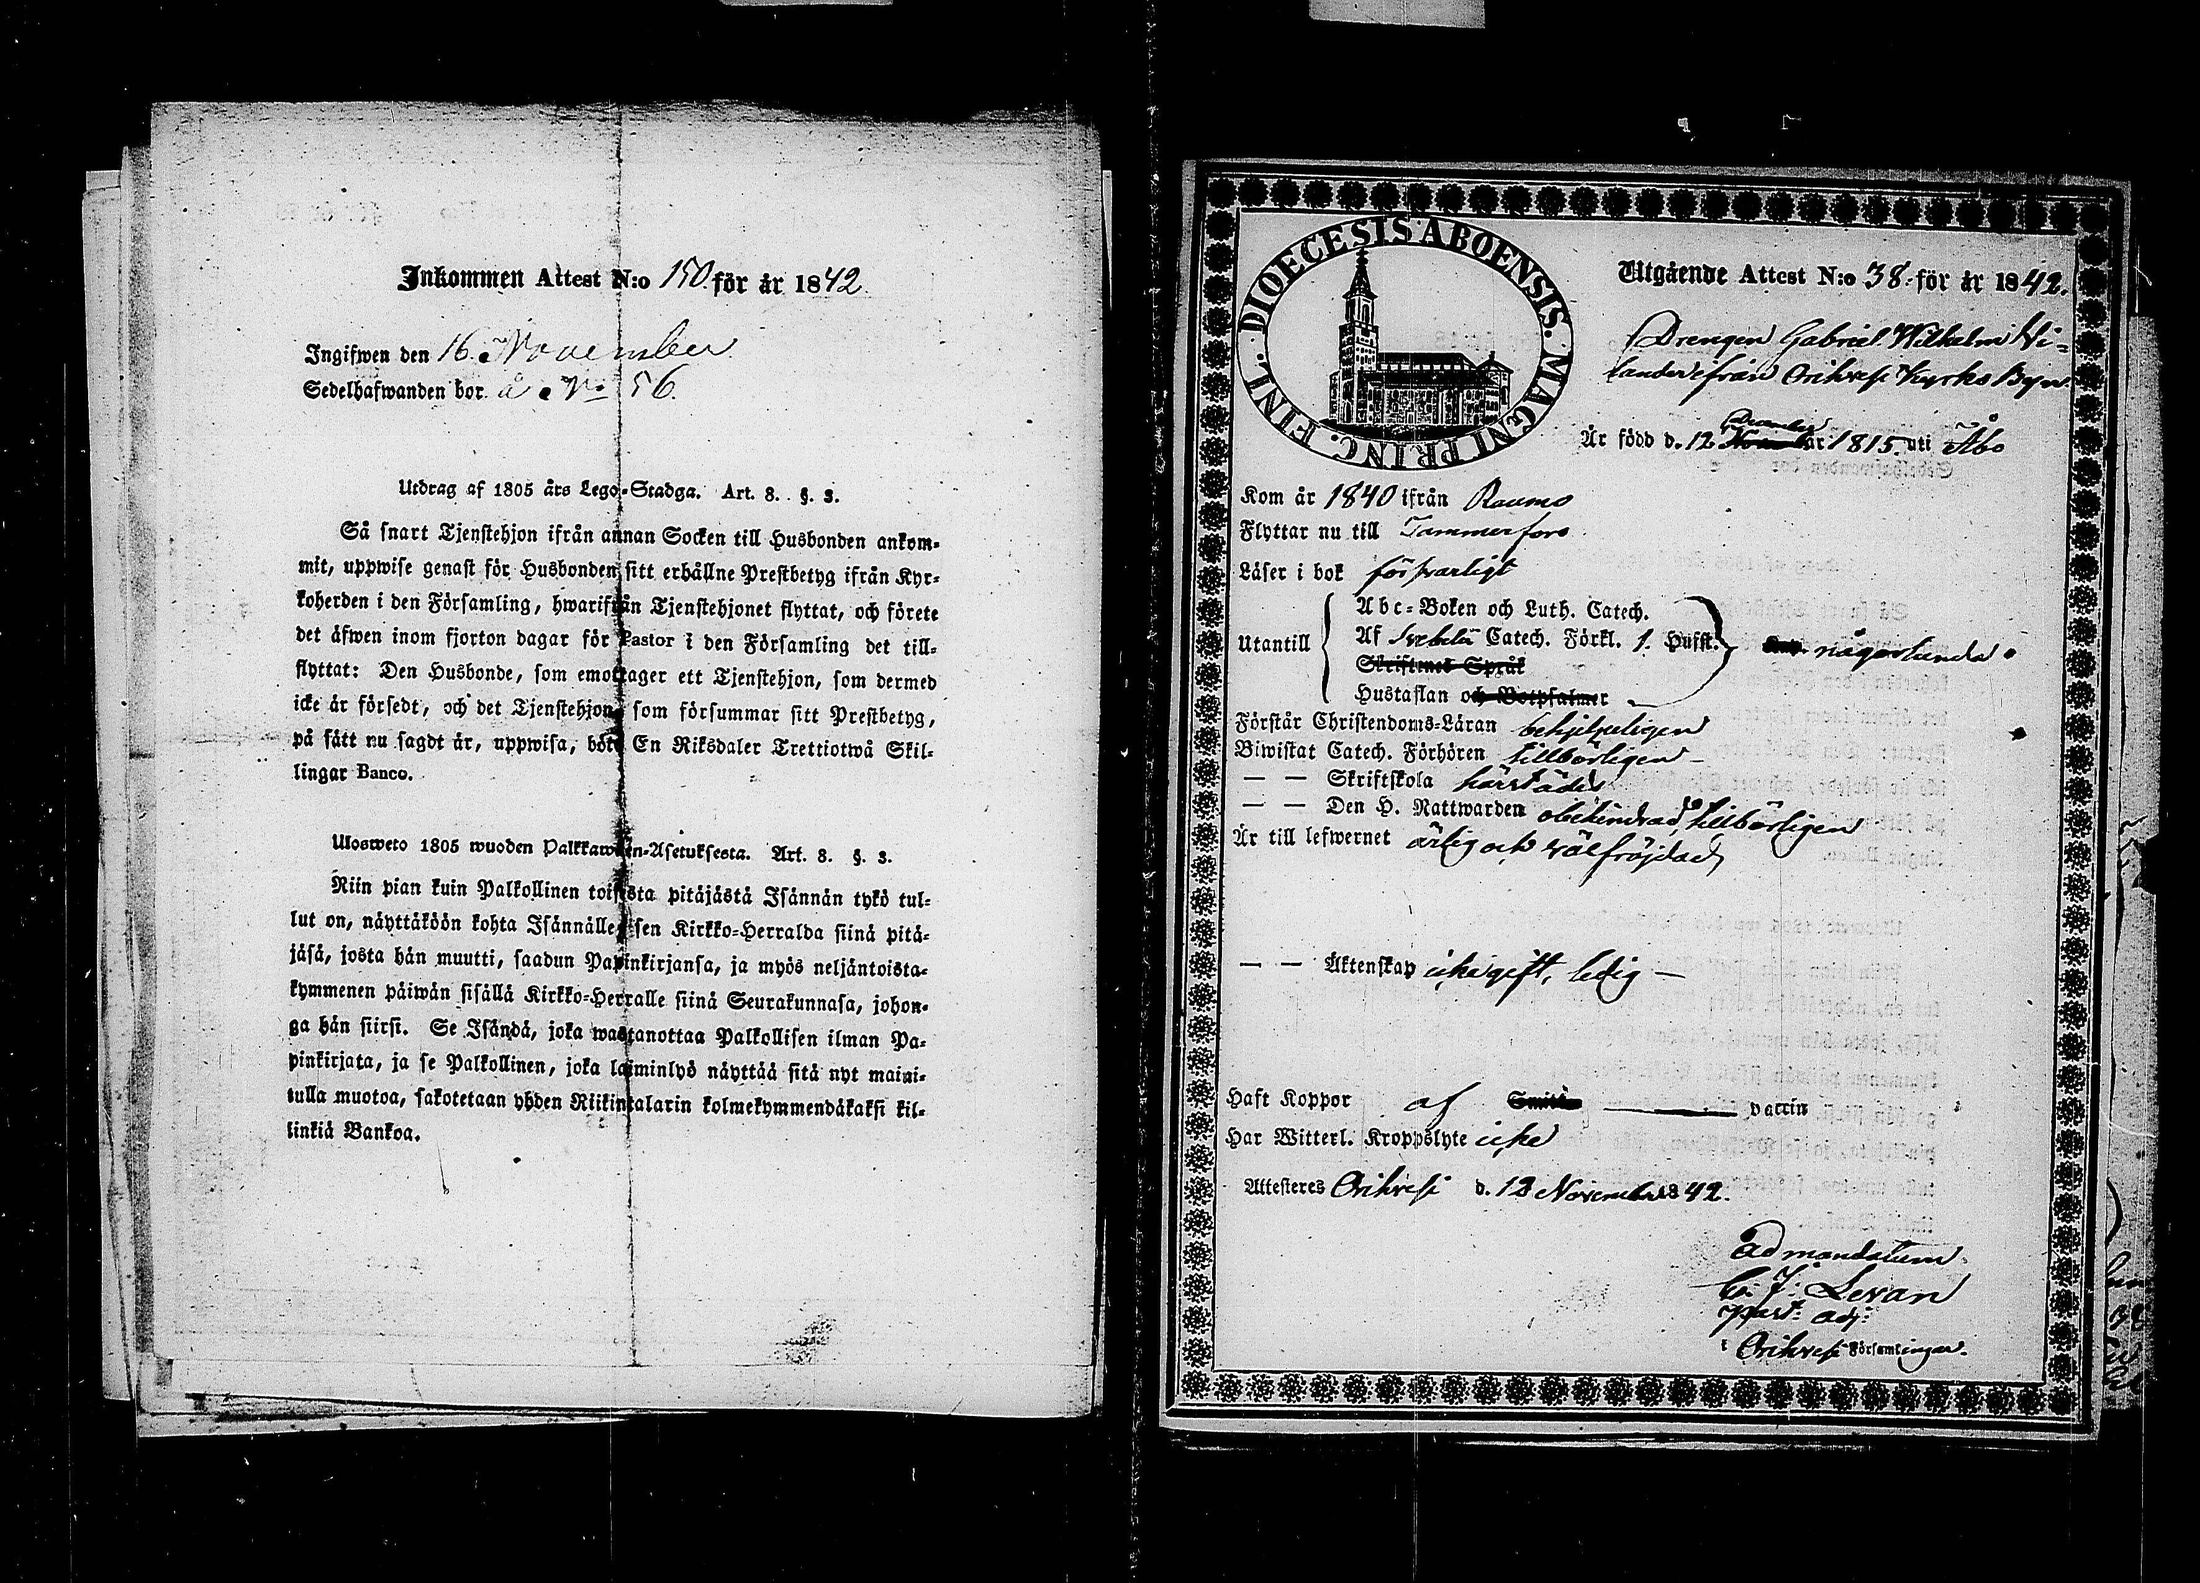 Inkommen Attest N:o 150 för år 1842.
Ingifwen den 16 November
Sedelhafwanden bor å No 56.
Utdrag af 1805 års Lego-Stadga. Art. 8. §. 3.
Så snart Tjenstehjon ifrån annan Socken till Husbonden ankom-
mit, uppwise genast för Husbonden sitt erhållne Prestbetyg ifrån Kyr-
koherden i den Församling, hwarifrån Tjenstehjonet flyttat, och förete
det äfwen inom fjorton dagar för Pastor i den Församling det till-
flyttat: Den Husbonde, som emottager ett Tjenstehjon, som dermed
icke är försedt, och det Tjenstehjon, som försummar sitt Prestbetyg,
på sätt nu sagdt är, uppwisa, böte En Riksdaler Trettiotwå Skil-
lingar Banco.
Ulosweto 1805 wuoden Palkkawäen-Asetuksesta. Art. 8. §. 3.
Niin pian kuin Palkollinen toisesta pitäjästä Isännän tykö tul-
lut on, näyttäköön kohta Isännälle sen Kirkko-Herralda siinä pitä-
jäsä, josta hän muutti, saadun Papinkirjansa, ja myös neljäntoista-
kymmenen päiwän sisällä Kirkko-Herralle siinä Seurakunnasa, johon-
ga hän siirsi. Se Isändä, joka wastanottaa Palkollisen ilman Pa-
pinkirjata, ja se Palkollinen, joka laiminlyö näyttää sitä nyt maini-
tulla muotoa, sakotetaan yhden Riikintalarin kolmekymmendäkaksi kil-
linkiä Bankoa.
DIOECESIS ABOENSIS. MAGNI PRINC. FINL.
Utgående Attest N:o 38. för år 1842.
Drengen Gabriel Wilhelm He-
lander ifrån Orihvesi Kyrko Byn
December
Är född d. 12 år 1815. uti Åbo
Kom år 1840 ifrån Raumo
Flyttar nu till Tammerfors
Läser i bok försvarligt
Abc-Boken och Luth. Catech.
Utantill Af Svebelii Catech. Förkl. 1. Hufst. någorlunda
Skriftenes Språk
Hustaflan och Botpsalmer
Förstår Christendoms-Läran behjelpeligen
Biwistat Catech. Förhören tillbörligen
— — Skriftskola härstädes
— — Den H. Nattwarden obehindrad, tillbörligen
Är till lefwernet ärlig och välfrejdad
— — Äktenskap icke gift, ledig —
Haft Koppor af Smitta vaccin
Har Witterl. Kroppslyte icke
Attesteres Orihvesi d. 12 November 1842.
Ad mandatum
C. J. Levan
past: adj:
i Orihvesi Församlingar.